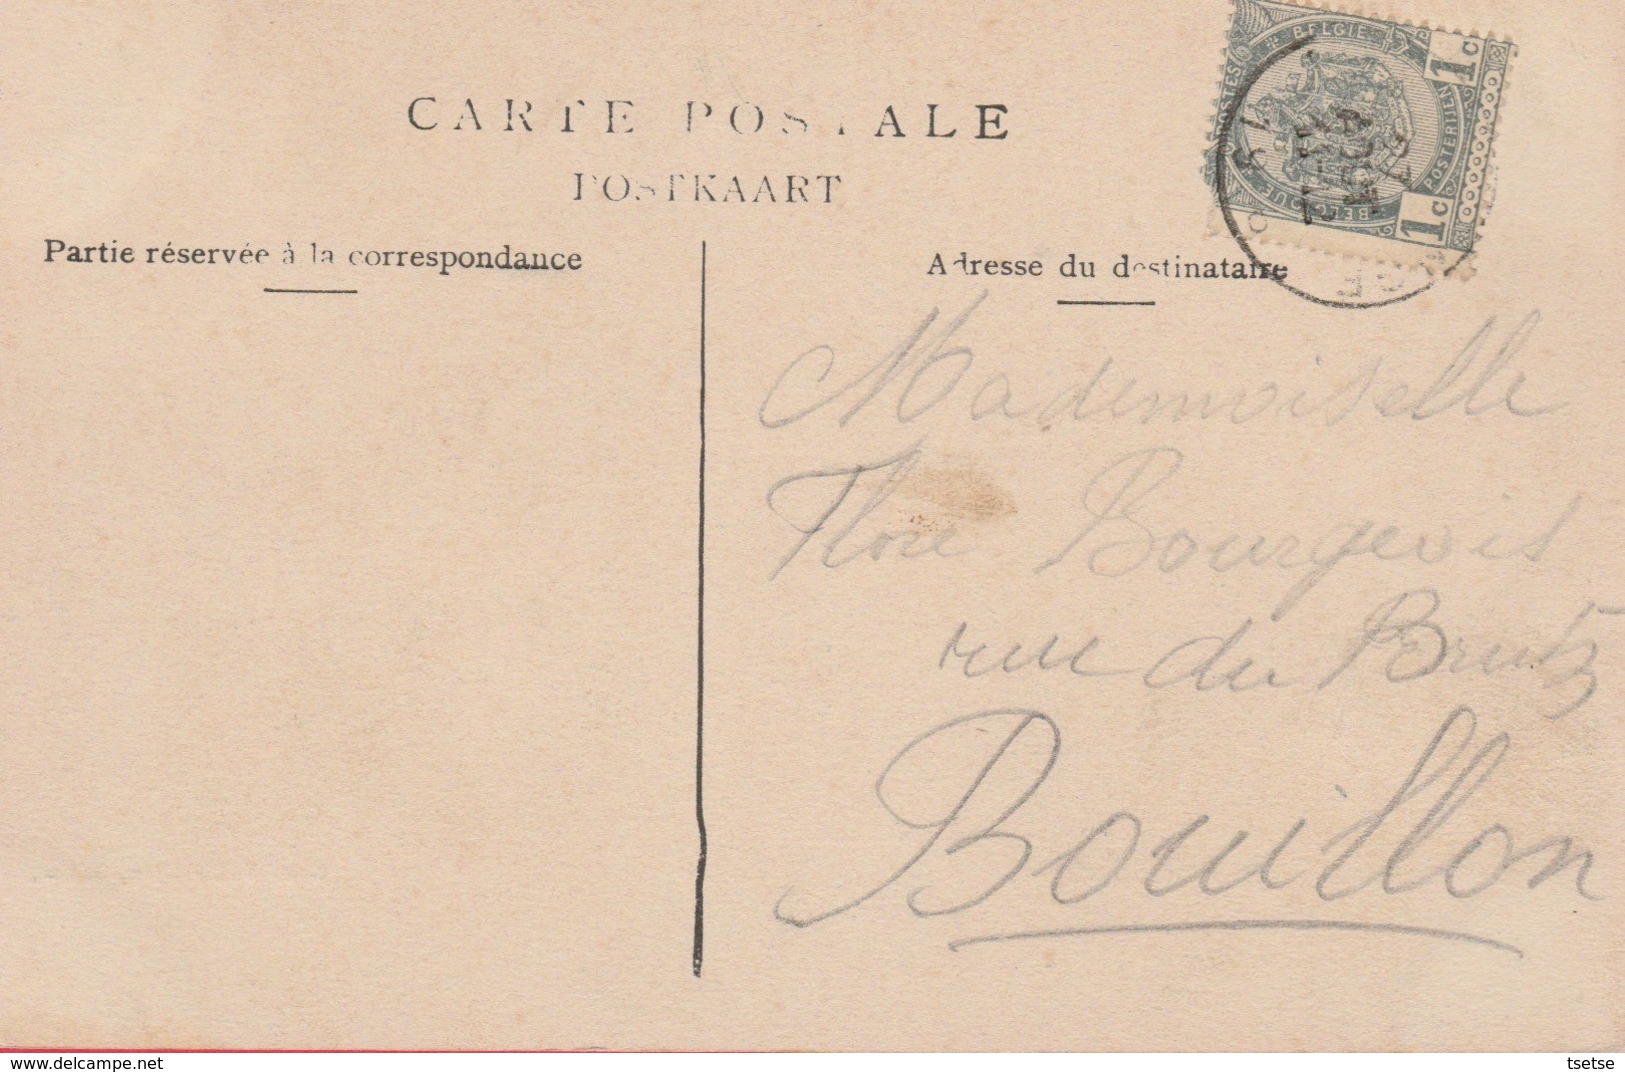 CARTE POSTALE
POSTKAART
Partie réservée à la correspondance
Adresse du destinataire
BELGIE
POSTES
1c
POSTERIJEN
BELGIQUE
1c
AOUT
Mademoiselle
Flore Bourgeois
rue du
Bouillon
www.delcampe.net
tsetse